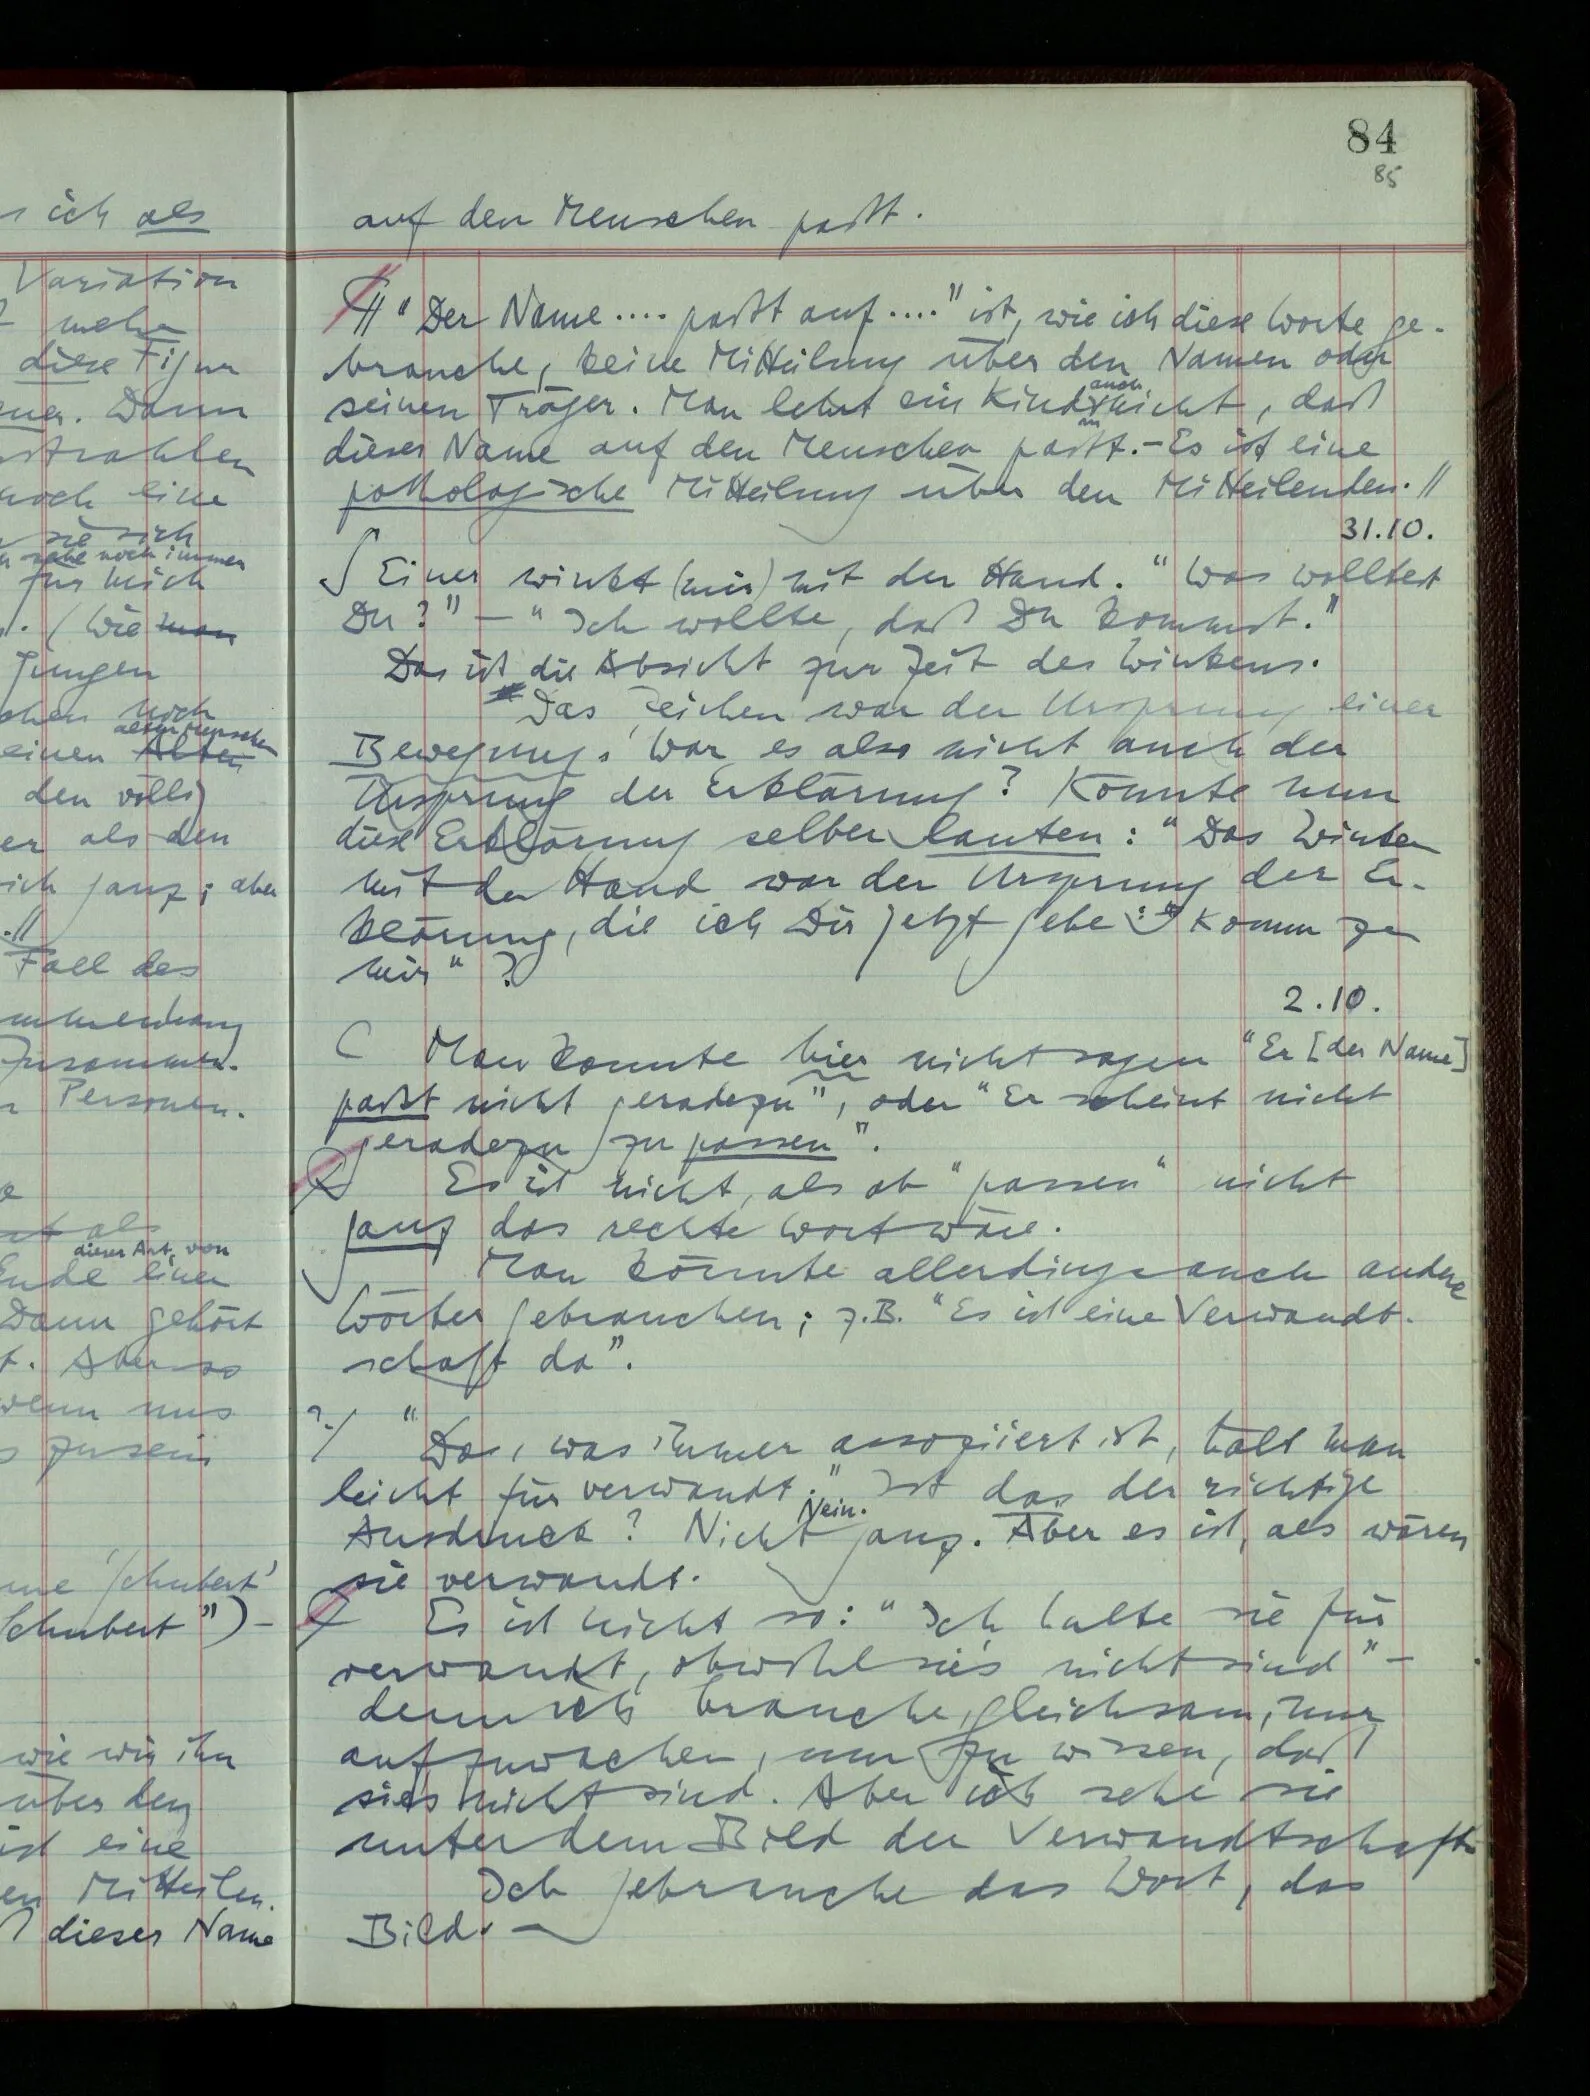 84
85
s ich als
Variation
mehr
diese Figur
ner. Dann
strahlen
noch eine
sie sich
sehe noch immer
für mich
. (Wie man
jungen
chen noch
alten Menschen
einen Alten
den völlig
er als den
sich ganz; aber
.//
Fall des
Zusammen-
n Personen.
als
dieser Art, von
Ende einer
Dann gehört
t. Aber so
wenn uns
s zu sein
me 'Schubert'
Schubert") –
wie wir ihn
über den
ist eine
en Mitteilen.
dieser Name
auf den Menschen paßt.
// "Der Name .... paßt auf ...." ist, wie ich diese Worte ge-
brauche, keine Mitteilung über den Namen oder
auch
seinen Träger. Man lehrt ein Kind nicht, daß
dieser Name auf den Menschen paßt. – Es ist eine
pathologische Mitteilung über den Mitteilenden. //
31.10.
∫ Einer winkt (mir) mit der Hand. "Was wolltest
Du?" – "Ich wollte, daß Du kommst."
Das ist die Absicht zur Zeit des Winkens.
Das Zeichen war der Ursprung einer
Bewegung; war es also nicht auch der
Ursprung der Erklärung? Könnte nun
diese Erklärung selber lauten: "Das Winken
mit der Hand war der Ursprung der Er-
klärung, die ich Dir jetzt gebe: Komm zu
mir"?
2.10.
C Man könnte hier nicht sagen "Er [der Name]
paßt nicht geradezu", oder "Er scheint nicht
geradezu zu passen".
Es ist nicht, als ob "passen" nicht
ganz das rechte Wort wäre.
Man könnte allerdings auch andere
Wörter gebrauchen; z.B. "Es ist eine Verwandt-
schaft da".
?/ "Das, was immer assoziiert ist, hält man
leicht für verwandt." Ist das der richtige
Nein.
Ausdruck? Nicht ganz. Aber es ist, als wären
sie verwandt.
Es ist nicht so: "Ich halte sie für
verwandt, obwohl sie's nicht sind" –
denn ich brauche, gleichsam, nur
aufzuwachen, um zu wissen, daß
sie's nicht sind. Aber ich sehe sie
unter dem Bild der Verwandtschaft.
Ich gebrauche das Wort, das
Bild. –